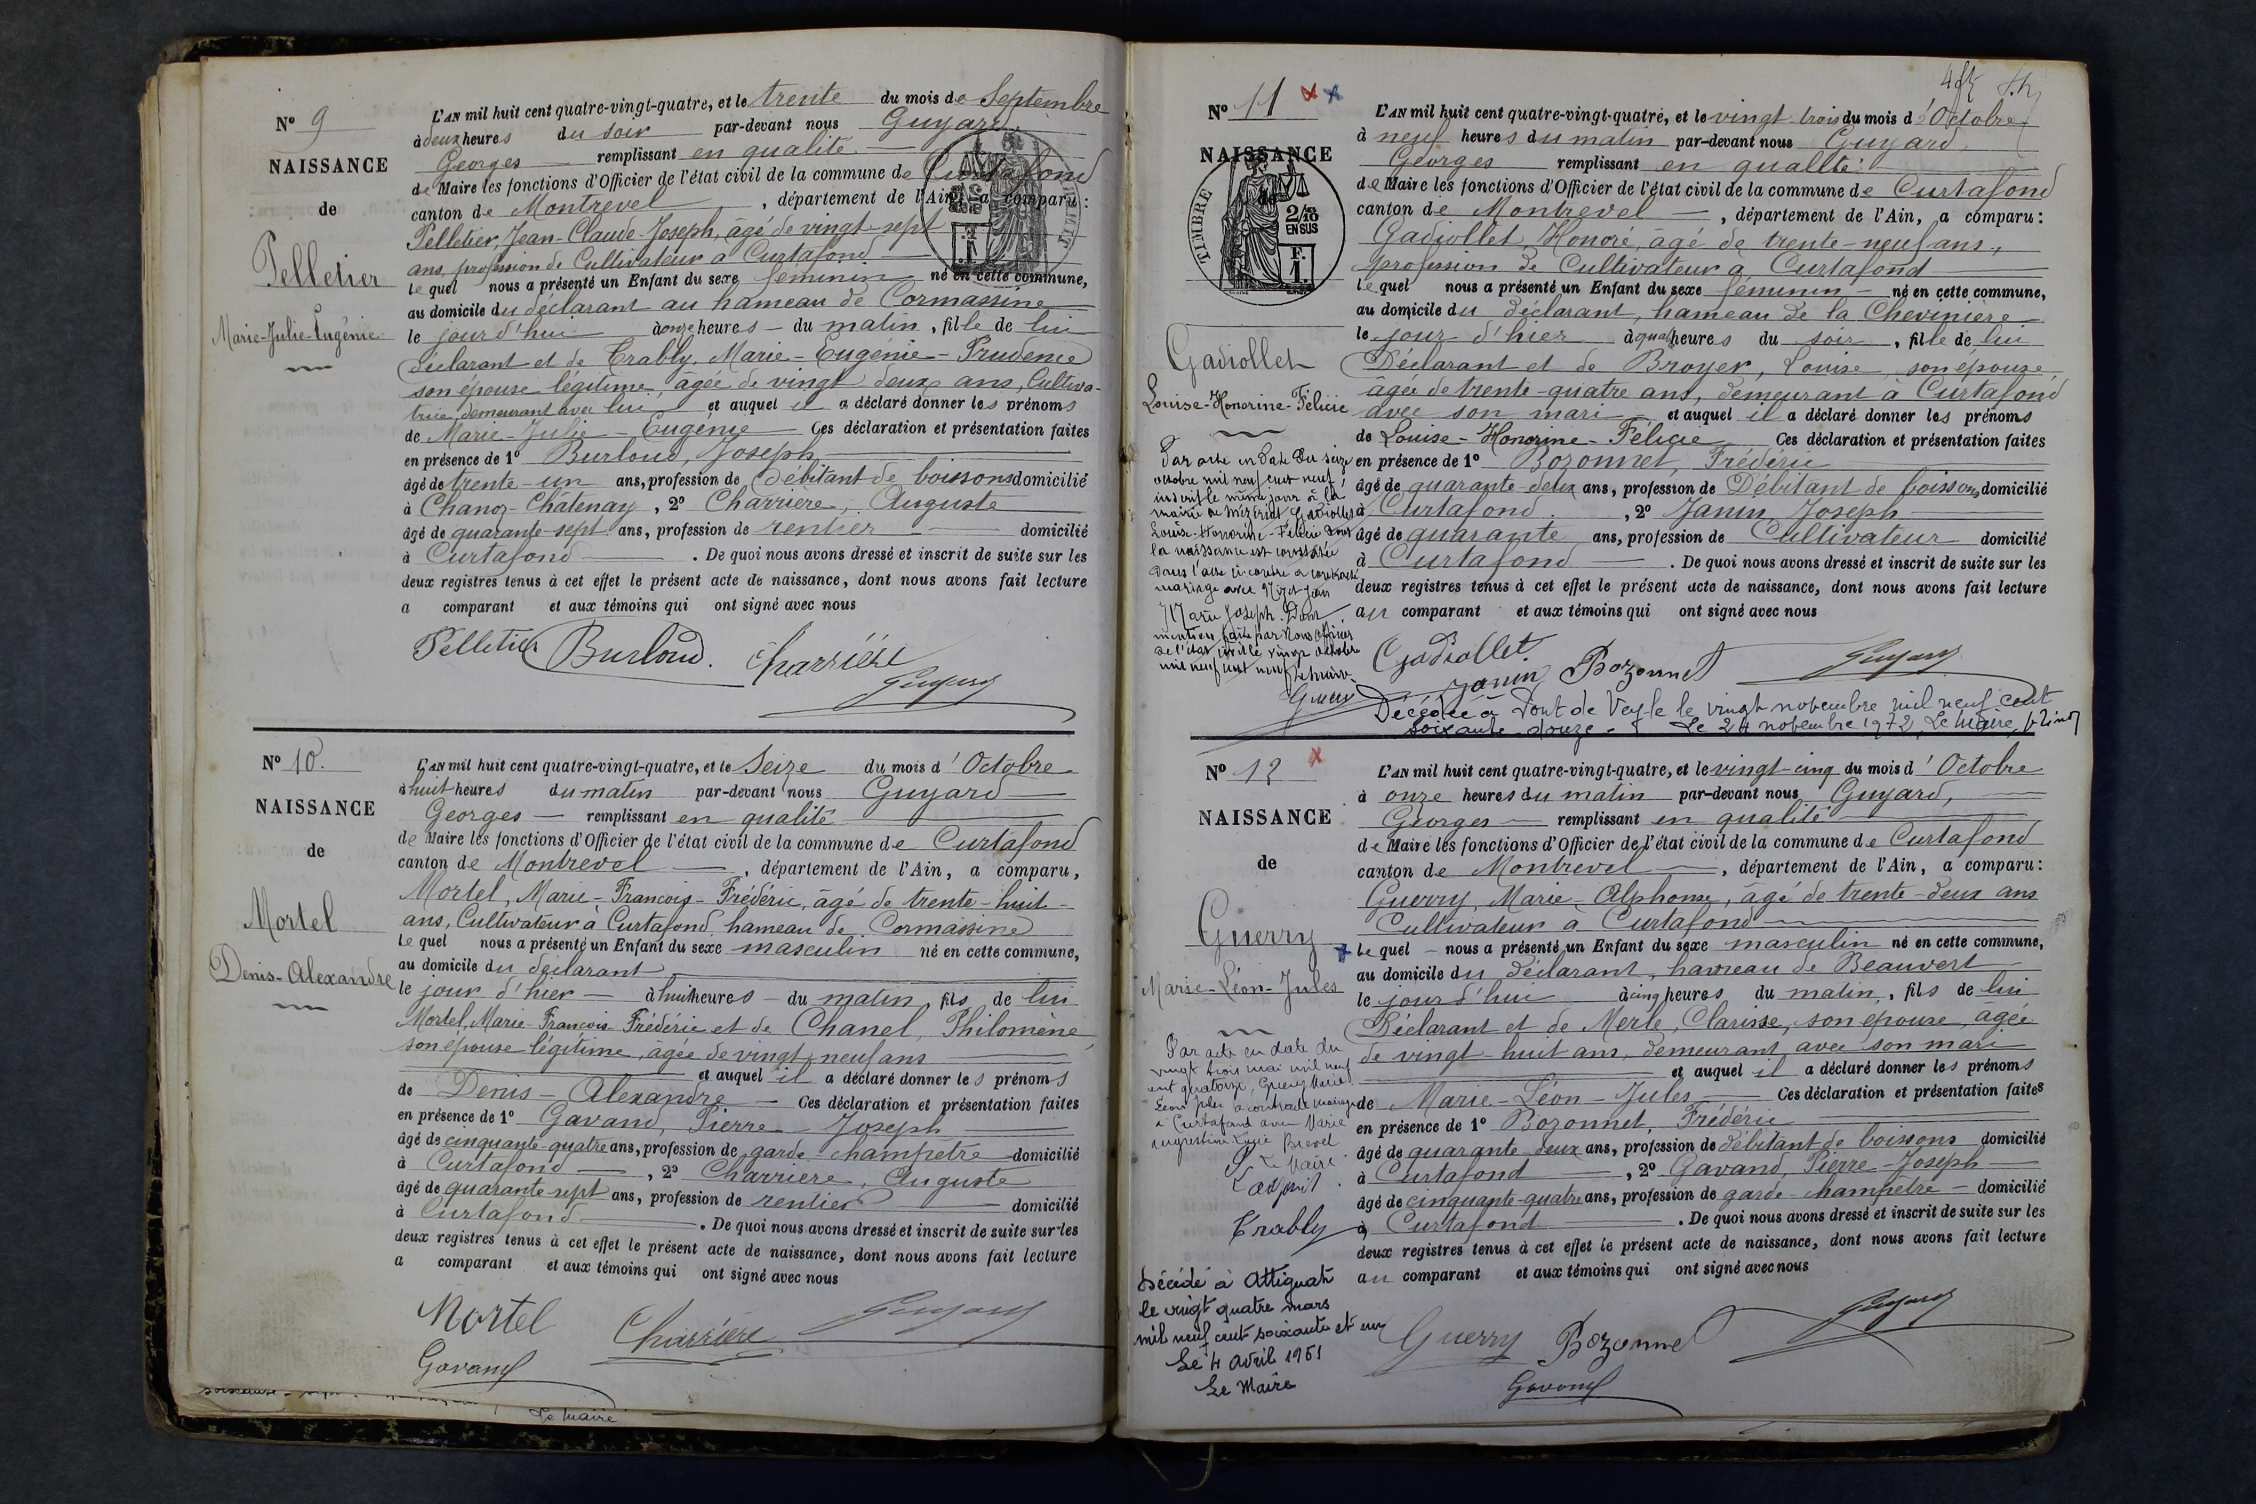 Nº 9
NAISSANCE
de
Pelletier
Marie-Julie-Eugénie
L'AN mil huit cent quatre-vingt-quatre, et le trente du mois de Septembre
à deux heures du soir par-devant nous Guyard
Georges remplissant en qualité
de Maire les fonctions d'Officier de l'état civil de la commune de Curtafond
canton de Montrevel, département de l'Ain, a comparu :
Pelletier, Jean-Claude-Joseph, âgé de vingt-sept
ans, profession de Cultivateur à Curtafond
le quel nous a présenté un Enfant du sexe féminin né en cette commune,
au domicile du déclarant au hameau de Cormassine
le jour d'hui à onze heures du matin, fille de lui
déclarant et de Trably, Marie-Eugénie-Prudence
son épouse légitime, âgée de vingt deux ans, Cultiva-
trice, demeurant avec lui et auquel il a déclaré donner les prénoms
de Marie-Julie-Eugénie Ces déclaration et présentation faites
en présence de 1º Burloud, Joseph
âgé de trente-un ans, profession de Débitant de boissons domicilié
à Chanoz-Châtenay, 2º Charrière, Auguste
âgé de quarante-sept ans, profession de rentier domicilié
à Curtafond. De quoi nous avons dressé et inscrit de suite sur les
deux registres tenus à cet effet le présent acte de naissance, dont nous avons fait lecture
a comparant et aux témoins qui ont signé avec nous
Pelletier Burloud. Charrière
Guyard
Nº 10.
NAISSANCE
de
Mortel
Denis-Alexandre
L'AN mil huit cent quatre-vingt-quatre, et le Seize du mois d'Octobre
à huit heures du matin par-devant nous Guyard
Georges remplissant en qualité
de Maire les fonctions d'Officier de l'état civil de la commune de Curtafond
canton de Montrevel, département de l'Ain, a comparu,
Mortel, Marie-François-Frédéric, âgé de trente-huit
ans, Cultivateur à Curtafond, hameau de Cormassine
le quel nous a présenté un Enfant du sexe masculin né en cette commune,
au domicile du déclarant
le jour d'hier à huit heures du matin, fils de lui
Mortel, Marie-François-Frédéric et de Chanel, Philomène,
son épouse légitime, âgée de vingt neuf ans
et auquel il a déclaré donner les prénoms
de Denis-Alexandre Ces déclaration et présentation faites
en présence de 1º Gavand, Pierre-Joseph
âgé de cinquante-quatre ans, profession de garde-champêtre domicilié
à Curtafond, 2º Charrière, Auguste
âgé de quarante-sept ans, profession de rentier domicilié
à Curtafond. De quoi nous avons dressé et inscrit de suite sur les
deux registres tenus à cet effet le présent acte de naissance, dont nous avons fait lecture
a comparant et aux témoins qui ont signé avec nous
Mortel Charrière Guyard
Gavand
Le Maire
Nº 11
NAISSANCE
de
TIMBRE
2/10 EN SUS
F. 1.
Gadiollet
Louise-Honorine-Félicie
Par acte en date du seize
octobre mil neuf cent neuf,
inscrit le même jour à la
mairie de Mézériat Gadiollet
Louise-Honorine-Félicie dont
la naissance est constatée
dans l'acte ci-contre a contracté
mariage avec Nizet Jean
Marie Joseph. Dont
mention faite par Nous officier
de l'état civil le vingt octobre
mil neuf cent neuf. Le Maire.
L'AN mil huit cent quatre-vingt-quatre, et le vingt-trois du mois d'Octobre
à neuf heures du matin par-devant nous Guyard
Georges remplissant en qualité
de Maire les fonctions d'Officier de l'état civil de la commune de Curtafond
canton de Montrevel, département de l'Ain, a comparu :
Gadiollet, Honoré, âgé de trente-neuf ans,
profession de Cultivateur à Curtafond
le quel nous a présenté un Enfant du sexe féminin né en cette commune,
au domicile du déclarant, hameau de la Chevinière
le jour d'hier à quatre heures du soir, fille de lui
Déclarant et de Broyer, Louise, son épouse,
âgée de trente-quatre ans, demeurant à Curtafond
avec son mari et auquel il a déclaré donner les prénoms
de Louise-Honorine-Félicie Ces déclaration et présentation faites
en présence de 1º Bozonnet, Frédéric
âgé de quarante-deux ans, profession de Débitant de boissons domicilié
à Curtafond, 2º Janin Joseph
âgé de quarante ans, profession de Cultivateur domicilié
à Curtafond. De quoi nous avons dressé et inscrit de suite sur les
deux registres tenus à cet effet le présent acte de naissance, dont nous avons fait lecture
au comparant et aux témoins qui ont signé avec nous
Gadiollet Janin Bozonnet Guyard
Décédée à Pont de Veyle le vingt novembre mil neuf cent
soixante-douze. Le 24 novembre 1972, Le Maire,
Nº 12
NAISSANCE
de
Guerry
Marie-Léon-Jules
Par acte en date du
vingt trois mai mil neuf
cent quatorze, Guerry Marie
Léon Jules a contracté mariage
à Curtafond avec Marie
Augustine Lucie Brevet
P. Le Maire
L'adjoint
Trably
Décédé à Attignat
le vingt quatre mars
mil neuf cent soixante et un
Le 4 Avril 1961
Le Maire
L'AN mil huit cent quatre-vingt-quatre, et le vingt-cinq du mois d'Octobre
à onze heures du matin par-devant nous Guyard,
Georges remplissant en qualité
de Maire les fonctions d'Officier de l'état civil de la commune de Curtafond
canton de Montrevel, département de l'Ain, a comparu :
Guerry, Marie-Alphonse, âgé de trente-deux ans
Cultivateur à Curtafond
le quel nous a présenté un Enfant du sexe masculin né en cette commune,
au domicile du déclarant, hameau de Beauvert
le jour d'hui à cinq heures du matin, fils de lui
Déclarant et de Merle, Clarisse, son épouse, âgée
de vingt-huit ans, demeurant avec son mari
et auquel il a déclaré donner les prénoms
de Marie-Léon-Jules Ces déclaration et présentation faites
en présence de 1º Bozonnet, Frédéric
âgé de quarante deux ans, profession de débitant de boissons domicilié
à Curtafond, 2º Gavand, Pierre-Joseph
âgé de cinquante-quatre ans, profession de garde-champêtre domicilié
à Curtafond. De quoi nous avons dressé et inscrit de suite sur les
deux registres tenus à cet effet le présent acte de naissance, dont nous avons fait lecture
au comparant et aux témoins qui ont signé avec nous
Guerry Bozonnet Guyard
Gavand